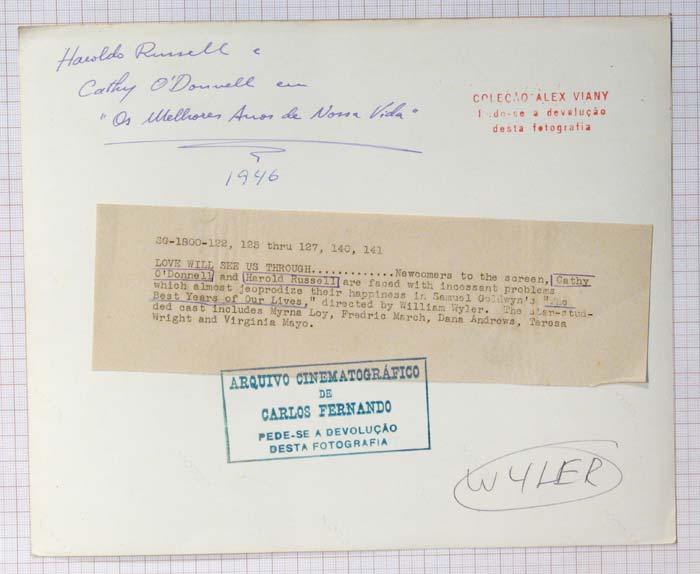 Haroldo Russell e
Cathy O'Donnell em
"Os Melhores Anos de Nossa Vida"
1946
COLEÇÃO ALEX VIANY
Pede-se a devolução
desta fotografia
SG-1800-122, 125 thru 127, 140, 141
LOVE WILL SEE US THROUGH.............Newcomers to the screen, Cathy
O'Donnell and Harold Russell are faced with incessant problems
which almost jeoprodize their happiness in Samuel Goldwyn's "The
Best Years of Our Lives," directed by William Wyler. The star-stud-
ded cast includes Myrna Loy, Fredric March, Dana Andrews, Teresa
Wright and Virginia Mayo.
ARQUIVO CINEMATOGRÁFICO
DE
CARLOS FERNANDO
PEDE-SE A DEVOLUÇÃO
DESTA FOTOGRAFIA
WYLER